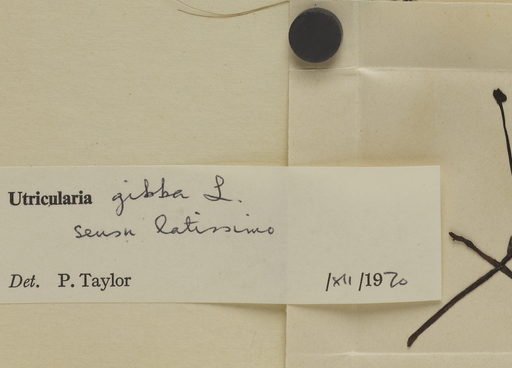 Utricularia gibba L.
sensu latissimo
Det. P. Taylor /XII/1970